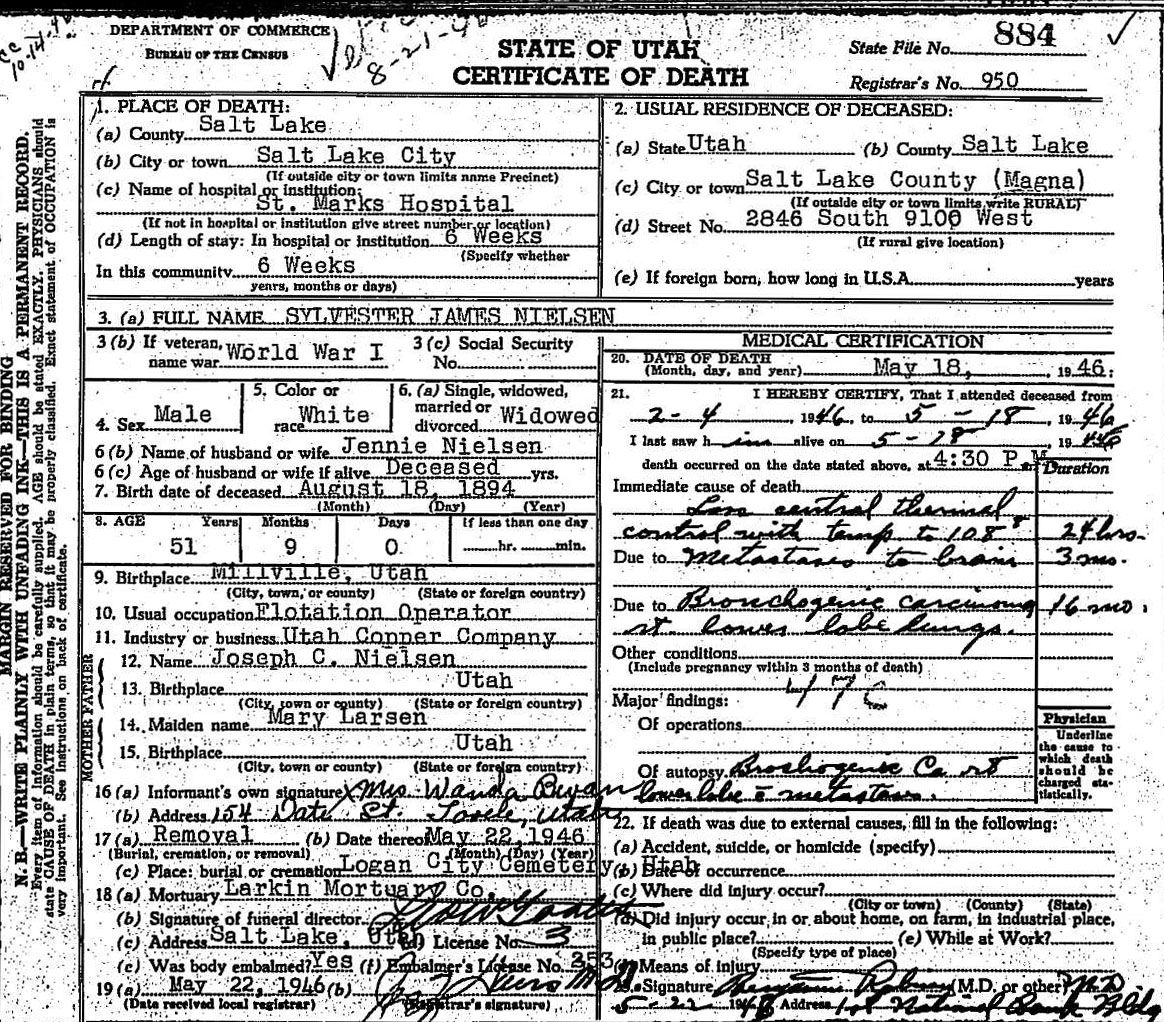 884
DEPARTMENT OF COMMERCE
BUREAU OF THE CENSUS
8-21-46
STATE OF UTAH
CERTIFICATE OF DEATH
State File No. 884
Registrar's No. 950
MARGIN RESERVED FOR BINDING
N. B.—WRITE PLAINLY WITH UNFADING INK—THIS IS A PERMANENT RECORD.
Every item of information should be carefully supplied. AGE should be stated EXACTLY. PHYSICIANS should
state CAUSE OF DEATH in plain terms, so that it may be properly classified. Exact statement of OCCUPATION is
very important. See instructions on back of certificate.
1. PLACE OF DEATH:
(a) County Salt Lake
(b) City or town Salt Lake City
(If outside city or town limits name Precinct)
(c) Name of hospital or institution:
St. Marks Hospital
(If not in hospital or institution give street number or location)
(d) Length of stay: In hospital or institution 6 Weeks
(Specify whether
In this community 6 Weeks
years, months or days)
2. USUAL RESIDENCE OF DECEASED:
(a) State Utah (b) County Salt Lake
(c) City or town Salt Lake County (Magna)
(If outside city or town limits, write RURAL)
(d) Street No. 2846 South 9100 West
(If rural give location)
(e) If foreign born, how long in U.S.A. years
3. (a) FULL NAME SYLVESTER JAMES NIELSEN
3 (b) If veteran, name war World War I 3 (c) Social Security No.
4. Sex Male 5. Color or race White 6. (a) Single, widowed, married or divorced Widowed
6 (b) Name of husband or wife Jennie Nielsen
6 (c) Age of husband or wife if alive Deceased yrs.
7. Birth date of deceased August 18, 1894
(Month) (Day) (Year)
8. AGE Years Months Days If less than one day
51 9 0 hr. min.
9. Birthplace Millville, Utah
(City, town, or county) (State or foreign country)
10. Usual occupation Flotation Operator
11. Industry or business Utah Copper Company
FATHER
12. Name Joseph C. Nielsen
13. Birthplace Utah
(City, town or county) (State or foreign country)
MOTHER
14. Maiden name Mary Larsen
15. Birthplace Utah
(City, town or county) (State or foreign country)
16 (a) Informant's own signature Mrs Wanda Bevan
(b) Address 154 Date St. Tooele, Utah
17 (a) Removal (b) Date thereof May 22, 1946
(Burial, cremation, or removal) (Month) (Day) (Year)
(c) Place: burial or cremation Logan City Cemetery, Utah
18 (a) Mortuary Larkin Mortuary Co.
(b) Signature of funeral director
(c) Address Salt Lake, Utah (d) License No. 3
(e) Was body embalmed? Yes (f) Embalmer's License No. 353
19 (a) May 22, 1946 (b)
(Date received local registrar) (Registrar's signature)
MEDICAL CERTIFICATION
20. DATE OF DEATH
(Month, day, and year) May 18, 1946
21. I HEREBY CERTIFY, That I attended deceased from
2-4 1946 to 5-18, 1946
I last saw him alive on 5-18, 1946
death occurred on the date stated above, at 4:30 P M.
Duration
Immediate cause of death
Loss central thermal
control with temp to 108° 24 hrs.
Due to Metastases to brain 3 mo.
Due to Bronchogenic carcinoma 16 mo.
rt. lower lobe lungs.
Other conditions
(Include pregnancy within 3 months of death)
47c
Major findings:
Of operations
Of autopsy Bronchogenic Ca rt
lower lobe c̄ metastases.
Physician
Underline
the cause to
which death
should be
charged sta-
tistically.
22. If death was due to external causes, fill in the following:
(a) Accident, suicide, or homicide (specify)
(b) Date of occurrence
(c) Where did injury occur?
(City or town) (County) (State)
(d) Did injury occur in or about home, on farm, in industrial place,
in public place? (e) While at Work?
(Specify type of place)
(f) Means of injury
23. Signature (M.D. or other) M.D.
5-22 1946 Address 1st National Bank Bldg